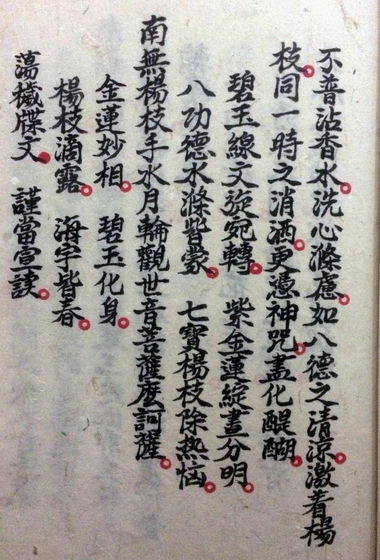 不普沾香水。洗心滌慮。如八德之清涼。激着楊
枝。同一時之消洒。更憑神咒。盡化醍醐。
碧玉線文旋宛轉。 紫金蓮綻畫分明。
八功德水滌蒙。 七寶楊枝除熱惱。
南無楊枝手水月輪觀世音菩薩麽訶薩。
金蓮妙相。 碧玉化身。
楊枝滴露。 海宇皆春。
蕩穢牒文。 謹當宣読。